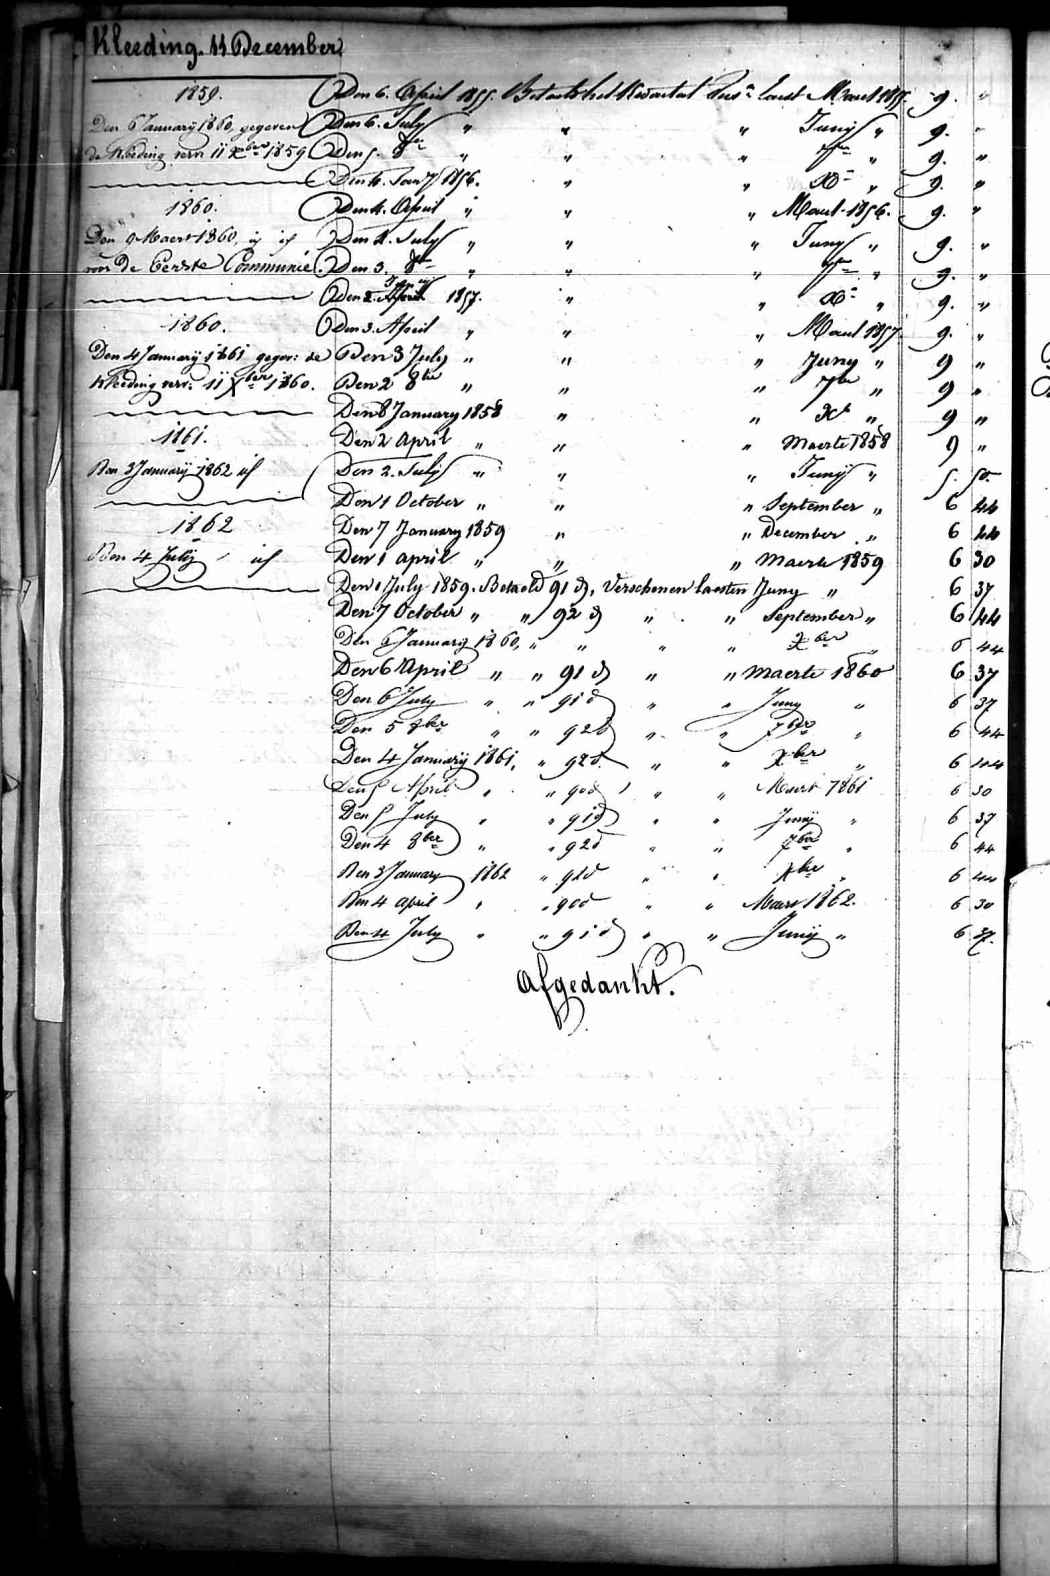 Kleeding. 11 December
1859.
Den 6 January 1860, gegeven
de Kleeding vern 11 Xber 1859
1860.
Den 9 Maert 1860, ij if
voor De Eerste Communie.
1860.
Den 4 January 1861 gegev: de
Kleeding verv. 11 Xber 1860.
1861.
Den 3 January 1862 if
1862
Den 4 July , if
Den 6. April 1855. Betaelt het Kwartal laest Maert 1855. 9. "
Den 6. July " " " Juny " 9. "
Den 5. 8br " " " 7br " 9. "
Den 4. Jany 1856. " " Xr " 9. "
Den 4. April " " " Maert 1856. 9. "
Den 4. July " " " Juny " 9. "
Den 3. 8br " " " 7br " 9. "
Den 2. April Jany 1857. " " Xr " 9. "
Den 3. April " " " Maert 1857. 9. "
Den 3 July " " " Juny " 9 "
Den 2 8br " " " 7br " 9 "
Den 8 January 1858 " " Xr " 9 "
Den 2 April " " " Maerte 1858 9 "
Den 2. July " " " Juny " 5. 50.
Den 1 October " " " September " 6 44
Den 7 January 1859 " " December " 6 44
Den 1 april " " " Maerte 1859 6 30
Den 1 July 1859. Betaeld 91 d, Verschenen laesten Juny " 6 37
Den 7 October " " 92 d " " September " 6 44
Den 6 January 1860, " " " " Xber " 6 44
Den 6 April " " 91 d " " maerte 1860 6 37
Den 6 July " " 91 d " " Juny " 6 37
Den 5 8ber " " 92 d " " 7ber " 6 44
Den 4 January 1861, " 92 d. " " Xber " 6 44
Den 5 April " " 90 d " " Maert 1861 6 30
Den 5 July " " 91 d " " Juny " 6 37
Den 4 8ber " " 92 d " " 7ber " 6 44
Den 3 January 1862 " 92 d " " Xber " 6 44
Den 4 april " " 90 d " " Maert 1862. 6 30
Den 4 July " " 91 d " " Juny " 6 37.
Afgedankt.